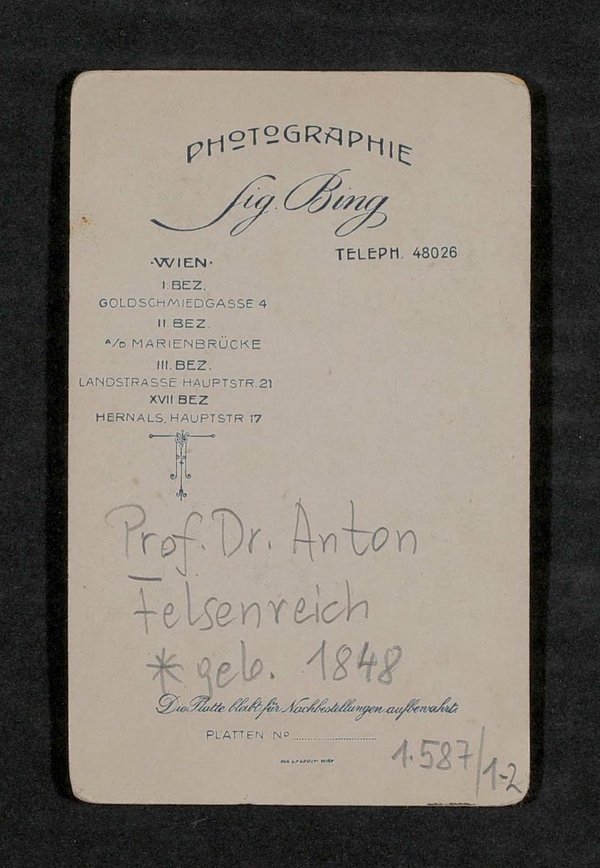 PHOTOGRAPHIE
Sig. Bing
TELEPH. 48026
·WIEN·
I BEZ.
GOLDSCHMIEDGASSE 4
II. BEZ.
A/D MARIENBRÜCKE
III. BEZ.
LANDSTRASSE HAUPTSTR 21
XVII BEZ
HERNALS, HAUPTSTR 17
Prof. Dr. Anton
Felsenreich
* geb. 1848
Die Platte bleibt für Nachbestellungen aufbewahrt.
PLATTEN No
1.587/1-2